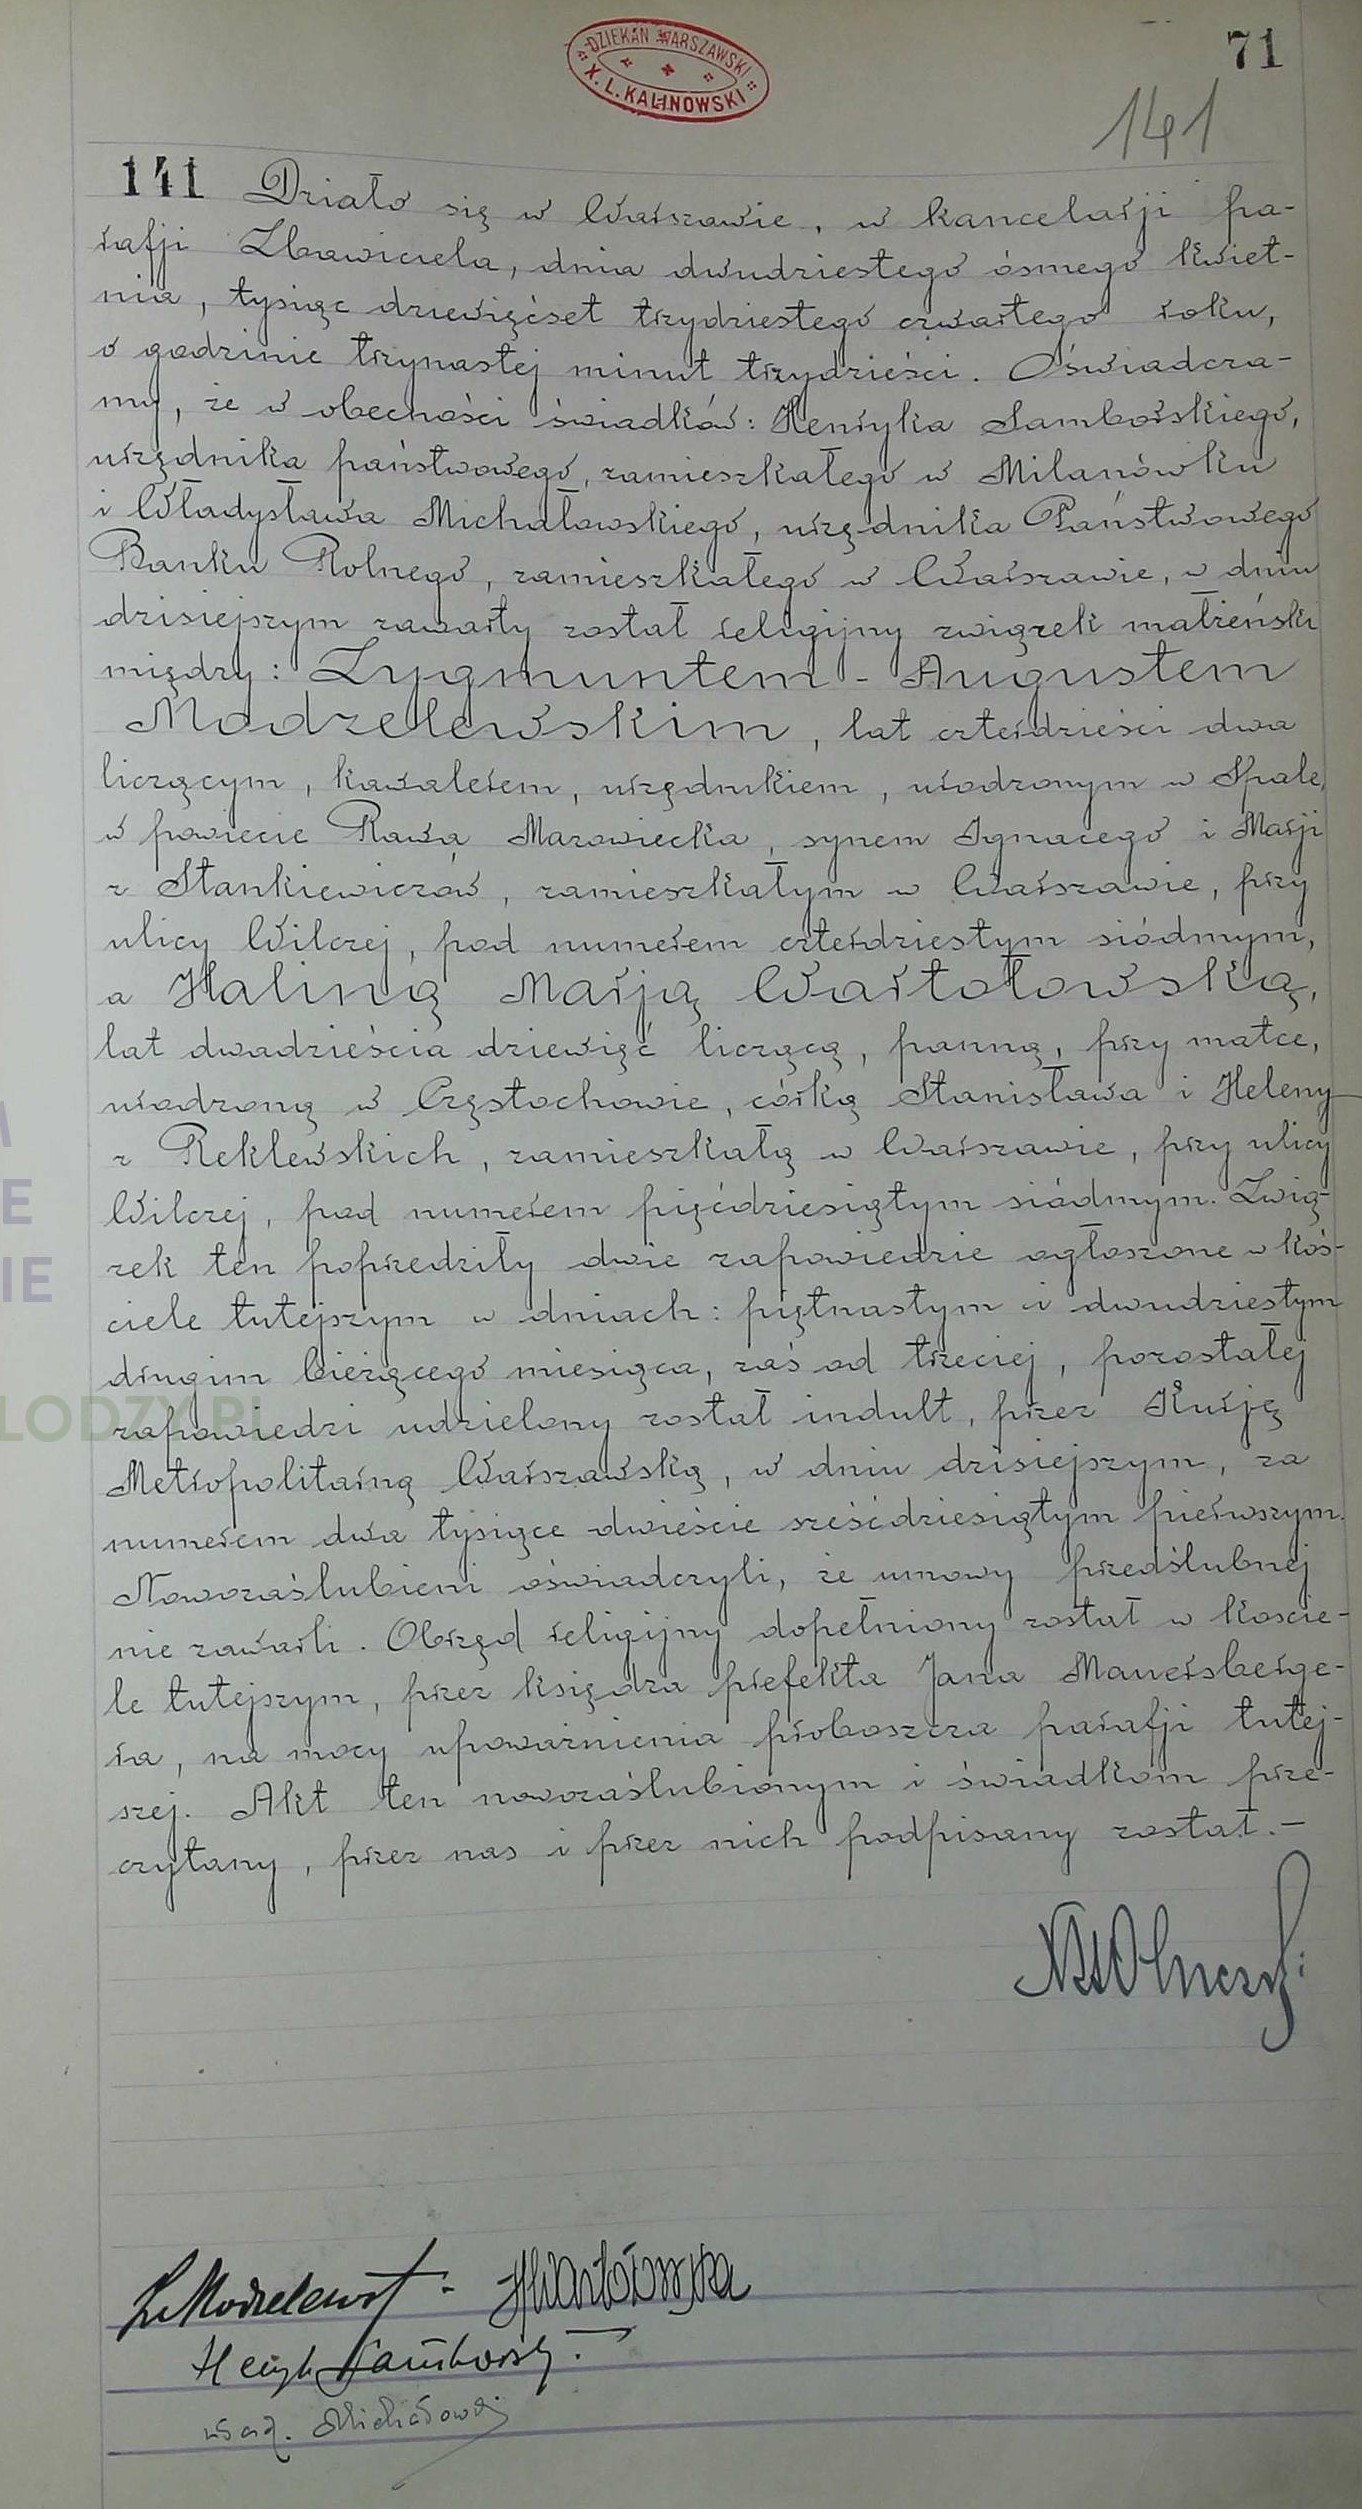 DZIEKAN WARSZAWSKI
X. L. KALINOWSKI
71
141
141 Działo się w Warszawie, w kancelarji pa-
rafji Zbawiciela, dnia dwudziestego ósmego kwiet-
nia, tysiąc dziewięćset trzydziestego czwartego roku,
o godzinie trzynastej minut trzydzieści. Oświadcza-
my, że w obecności świadków: Henryka Samborskiego,
urzędnika państwowego, zamieszkałego w Milanówku
i Władysława Michałowskiego, urzędnika Państwowego
Banku Rolnego, zamieszkałego w Warszawie, w dniu
dzisiejszym zawarty został religijny związek małżeński
między: Zygmuntem - Augustem
Modzelewskim, lat czterdzieści dwa
liczącym, kawalerem, urzędnikiem, urodzonym w Spale,
w powiecie Rawa Mazowiecka, synem Ignacego i Marji
z Stankiewiczów, zamieszkałym w Warszawie, przy
ulicy Wilczej, pod numerem czterdziestym siódmym,
a Haliną Marją Wartołowską,
lat dwadzieścia dziewięć liczącą, panną, przy matce,
urodzoną w Częstochowie, córką Stanisława i Heleny
z Reklewskich, zamieszkałą w Warszawie, przy ulicy
Wilczej, pod numerem pięćdziesiątym siódmym. Zwią-
zek ten poprzedziły dwie zapowiedzie ogłoszone w koś-
ciele tutejszym w dniach: piętnastym i dwudziestym
drugim bieżącego miesiąca, zaś od trzeciej, pozostałej
zapowiedzi udzielony został indult, przez Kurję
Metropolitarną Warszawską, w dniu dzisiejszym, za
numerem dwa tysiące dwieście sześćdziesiątym pierwszym.
Nowozaślubieni oświadczyli, że umowy przedślubnej
nie zawarli. Obrzęd religijny dopełniony został w koście-
le tutejszym, przez księdza prefekta Jana Mauersberge-
ra, na mocy upoważnienia proboszcza parafji tutej-
szej. Akt ten nowozaślubionym i świadkom prze-
czytany, przez nas i przez nich podpisany został.—
Z Modzelewski - HWartołowska
Henryk Samborski.
Wład. Michałowski
M
IE
NIE
LODZY.PL